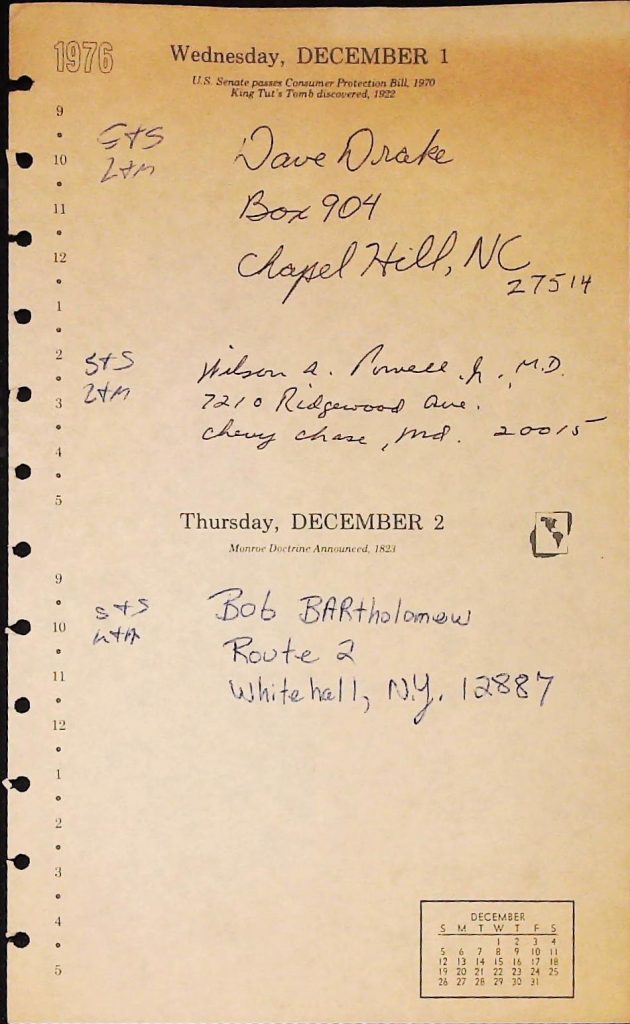 1976
Wednesday, DECEMBER 1
U.S. Senate passes Consumer Protection Bill, 1970
King Tut's Tomb discovered, 1922
9
S+S
L+M
Dave Drake
10
Box 904
11
Chapel Hill, NC
12
27514
1
2
S+S
L+M
Wilson A. Powell Jr., M.D.
3
7210 Ridgewood Ave.
Chevy Chase, Md. 20015
4
5
Thursday, DECEMBER 2
Monroe Doctrine Announced, 1823
9
S+S
Bob BARtholomew
10
Route 2
11
Whitehall, N.Y. 12887
12
1
2
3
4
5
DECEMBER
S M T W T F S
1 2 3 4
5 6 7 8 9 10 11
12 13 14 15 16 17 18
19 20 21 22 23 24 25
26 27 28 29 30 31